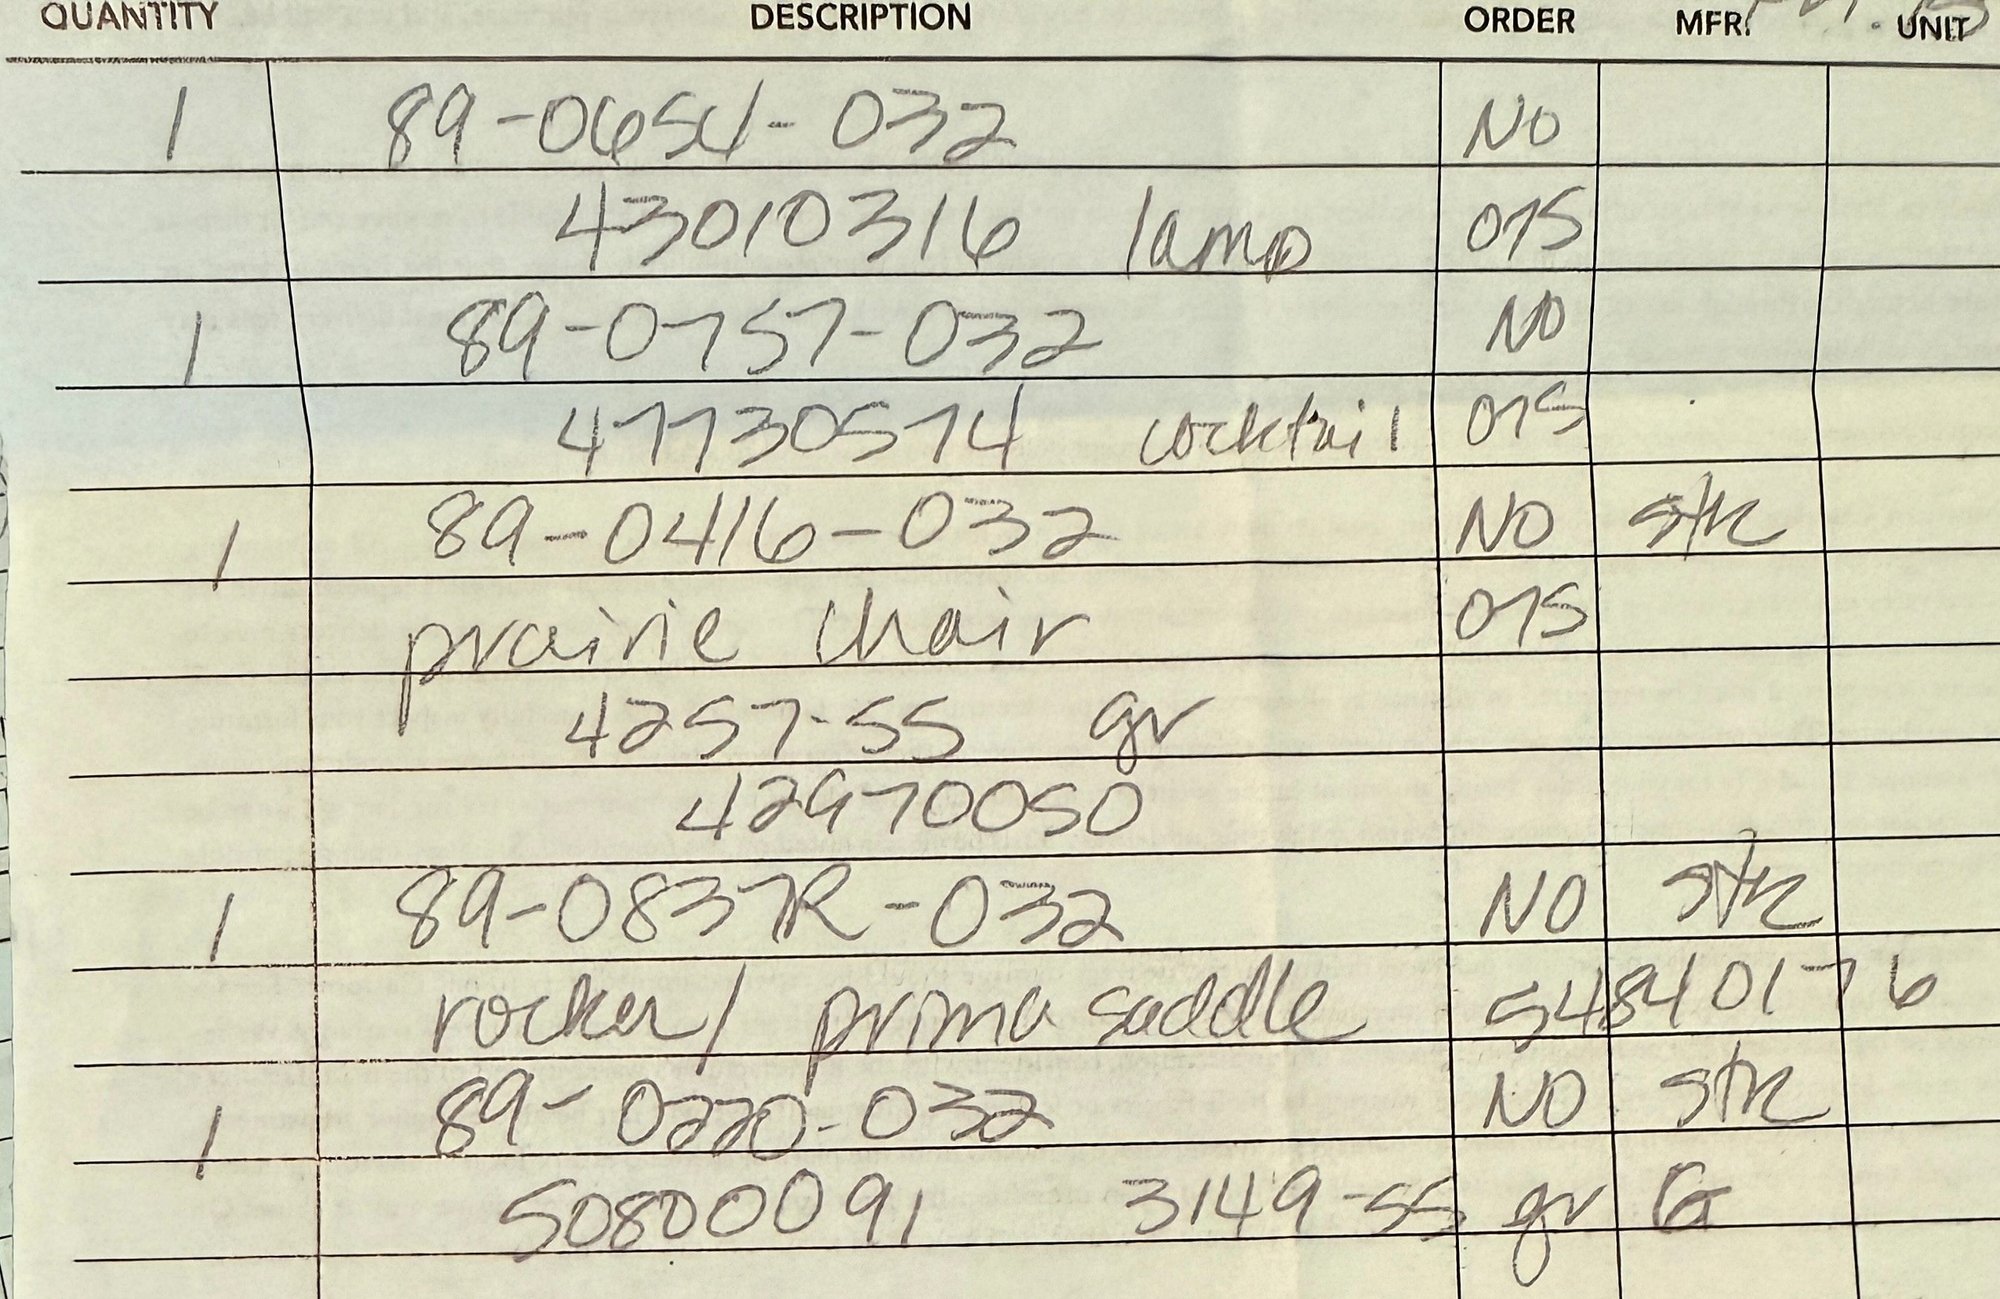 QUANTITY DESCRIPTION ORDER MFR. UNIT
1 89-0654-032 NO
43010316 lamp OTS
1 89-0757-032 NO
47730574 cocktail OTS
1 89-0416-032 NO stk
prairie chair OTS
4257-55 gr
42970050
1 89-0837R-032 NO stk
rocker/ prima saddle 54840176
1 89-0220-032 NO stk
50800091 3149-55 gr G